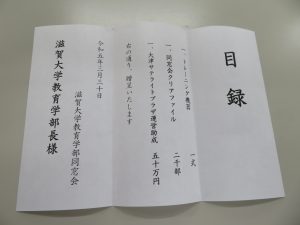 目録
一、トレーニング機器 一式
一、同窓会クリアファイル 二千部
一、大津サテライトプラザ運営助成 五十万円
右の通り、贈呈いたします
令和五年三月三十日
滋賀大学教育学部同窓会
滋賀大学教育学部長様